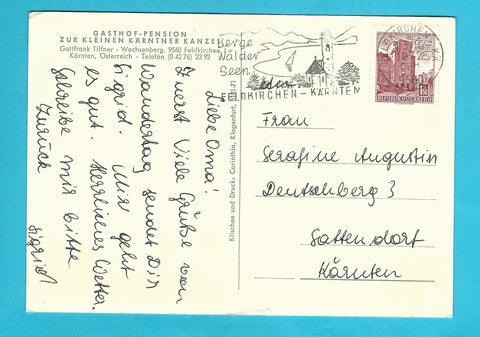 GASTHOF-PENSION
ZUR KLEINEN KÄRNTNER KANZEL
Gottfrank Tiffner - Wachsenberg, 9560 Feldkirchen,
Kärnten, Österreich - Telefon (0 42 76) 23 92
Liebe Oma!
Zuerst Viele Grüße vom
Wandertag sendet Dir
Sigrid. Mir geht
es gut. Herrliches Wetter.
Schreibe mir bitte
zurück
Sigrid
Klischee und Druck: Carinthia, Klagenfurt,
Berge
Wälder
Seen
FELDKIRCHEN-KÄRNTEN
REPUBLIK ÖSTERREICH
Frau
Serafine Augustin
Deutschberg 3
Sattendorf
Kärnten